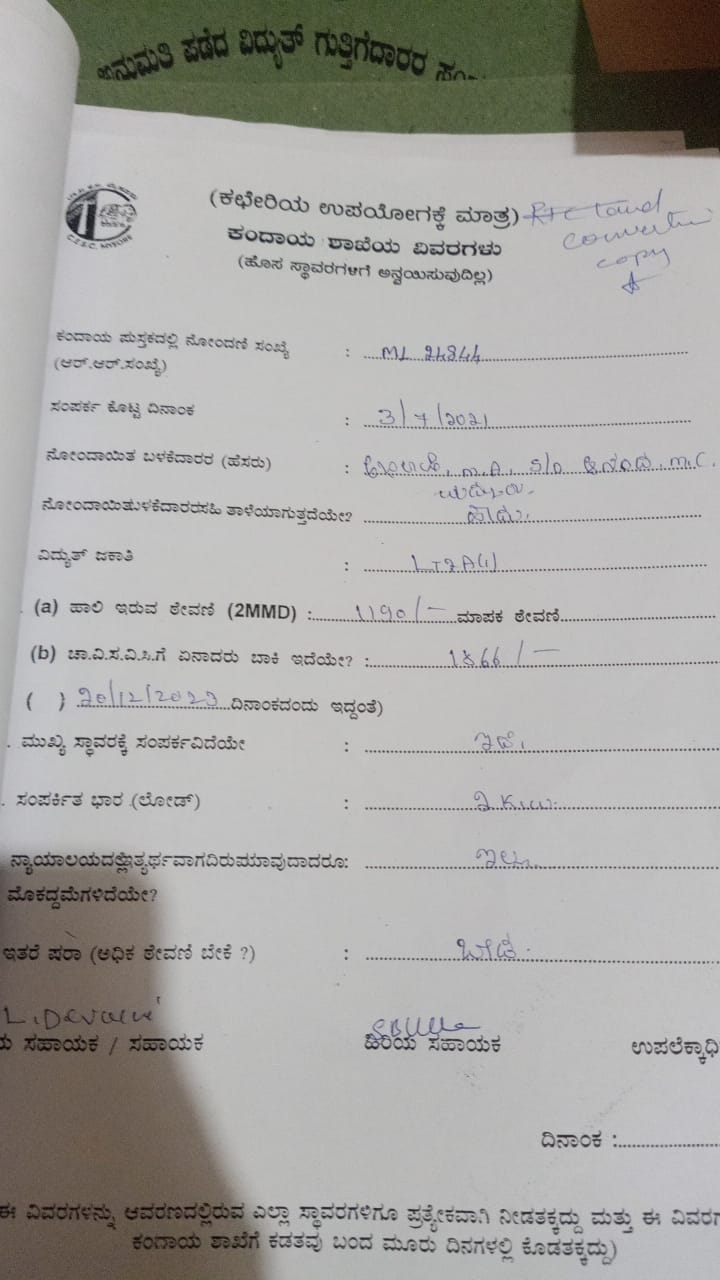 ಅನುಮತಿ ಪಡೆದ ವಿದ್ಯುತ್ ಗುತ್ತಿಗೆದಾರರ
(ಕಛೇರಿಯ ಉಪಯೋಗಕ್ಕೆ ಮಾತ್ರ)
copy
ಕಂದಾಯ ಶಾಖೆಯ ವಿವರಗಳು
(ಹೊಸ ಸ್ಥಾವರಗಳಿಗೆ ಅನ್ವಯಿಸುವುದಿಲ್ಲ)
C.E.S.C. MYSORE
ಕಂದಾಯ ಪುಸ್ತಕದಲ್ಲಿ ನೋಂದಣಿ ಸಂಖ್ಯೆ : ML 24844
(ಆರ್.ಆರ್.ಸಂಖ್ಯೆ)
ಸಂಪರ್ಕ ಕೊಟ್ಟ ದಿನಾಂಕ : 3/7/2021
ನೋಂದಾಯಿತ ಬಳಕೆದಾರರ (ಹೆಸರು) : M.A, S/O ಆನಂದ. M.C.
ನೋಂದಾಯಿತುಳಕೆದಾರರಸಹಿ ತಾಳೆಯಾಗುತ್ತದೆಯೇ? ಹೌದು.
ವಿದ್ಯುತ್ ಜಕಾತಿ : LT2A(1)
(a) ಹಾಲಿ ಇರುವ ಠೇವಣಿ (2MMD) : 1190/- ಮಾಪಕ ಠೇವಣಿ
(b) ಚಾ.ವಿ.ಸ.ವಿ.ಸಿ.ಗೆ ಏನಾದರು ಬಾಕಿ ಇದೆಯೇ? : 1866/-
( ) 20/12/2023 ದಿನಾಂಕದಂದು ಇದ್ದಂತೆ)
. ಮುಖ್ಯ ಸ್ಥಾವರಕ್ಕೆ ಸಂಪರ್ಕವಿದೆಯೇ : ಇದೆ.
. ಸಂಪರ್ಕಿತ ಭಾರ (ಲೋಡ್) : 2
ನ್ಯಾಯಾಲಯದಲ್ಲಿಇತ್ಯರ್ಥವಾಗದಿರುಮಾವುದಾದರೂ: ಇಲ್ಲ.
ಮೊಕದ್ದಮೆಗಳಿದೆಯೇ?
ಇತರೆ ಷರಾ (ಅಧಿಕ ಠೇವಣಿ ಬೇಕೆ ?) :
ಯ ಸಹಾಯಕ / ಸಹಾಯಕ ಹಿರಿಯ ಸಹಾಯಕ ಉಪಲೆಕ್ಕಾಧಿ
ದಿನಾಂಕ :
ಈ ವಿವರಗಳನ್ನು ಆವರಣದಲ್ಲಿರುವ ಎಲ್ಲಾ ಸ್ಥಾವರಗಳಿಗೂ ಪ್ರತ್ಯೇಕವಾಗಿ ನೀಡತಕ್ಕದ್ದು ಮತ್ತು ಈ ವಿವರಗ
ಕಂದಾಯ ಶಾಖೆಗೆ ಕಡತವು ಬಂದ ಮೂರು ದಿನಗಳಲ್ಲಿ ಕೊಡತಕ್ಕದ್ದು)